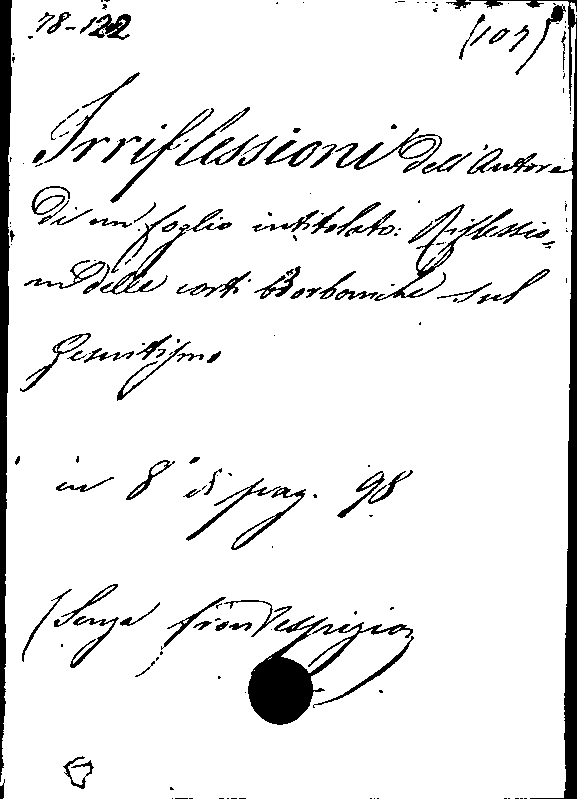 78-122
(107)
Irriflessioni dell'Autore
di un foglio intitolato: Riflessio-
ni delle corti Borboniche sul
Gesuitismo
in 8° di pag. 98
(Senza frontespizio)